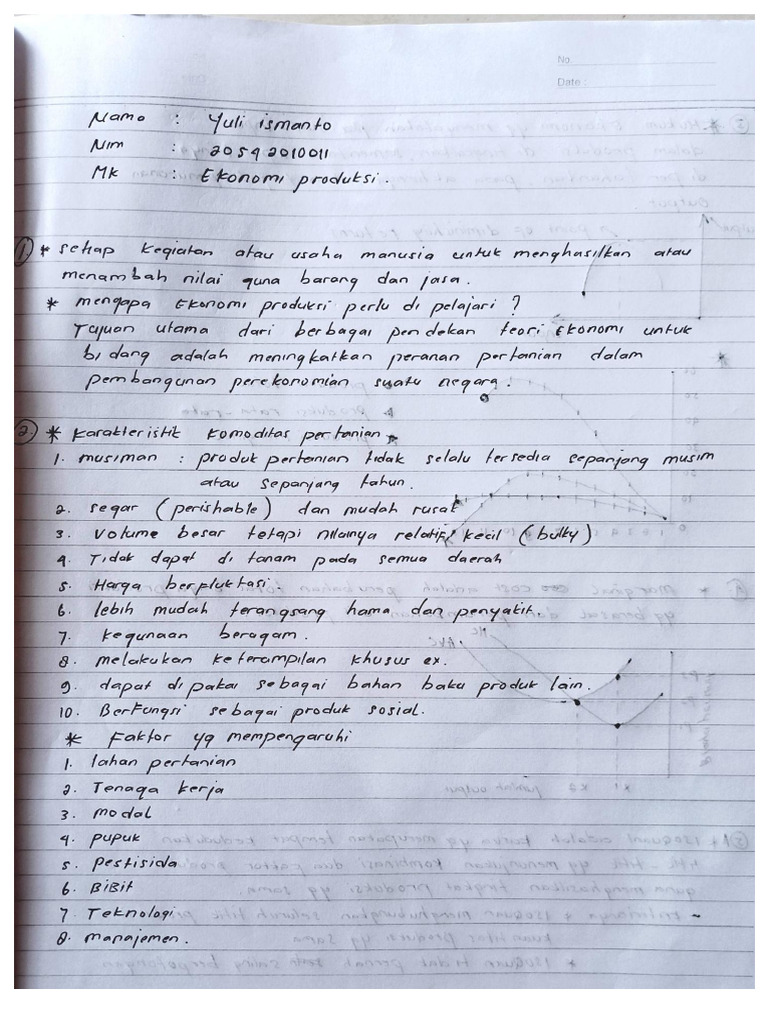 No.
Date :
Nama : Yuli ismanto
Nim : 20542010011
Mk : Ekonomi produksi.
1. * setiap kegiatan atau usaha manusia untuk menghasilkan atau
menambah nilai guna barang dan jasa.
* mengapa Ekonomi produksi perlu di pelajari ?
Tujuan utama dari berbagai pendekan teori Ekonomi untuk
bidang adalah meningkatkan peranan pertanian dalam
pembangunan perekonomian suatu negara.
2. * Karakteristik komoditas pertanian
1. musiman : produk pertanian tidak selalu tersedia sepanjang musim
atau sepanjang tahun.
2. segar (perishable) dan mudah rusak
3. Volume besar tetapi nilainya relatif kecil (bulky)
4. Tidak dapat di tanam pada semua daerah
5. Harga berfluktasi
6. lebih mudah terangsang hama dan penyakit.
7. kegunaan beragam.
8. melakukan keterampilan khusus ex.
9. dapat di pakai sebagai bahan baku produk lain.
10. Berfungsi sebagai produk sosial.
* Faktor yg mempengaruhi
1. lahan pertanian
2. Tenaga kerja
3. modal
4. pupuk
5. pestisida
6. BiBit
7. Teknologi
8. manajemen.